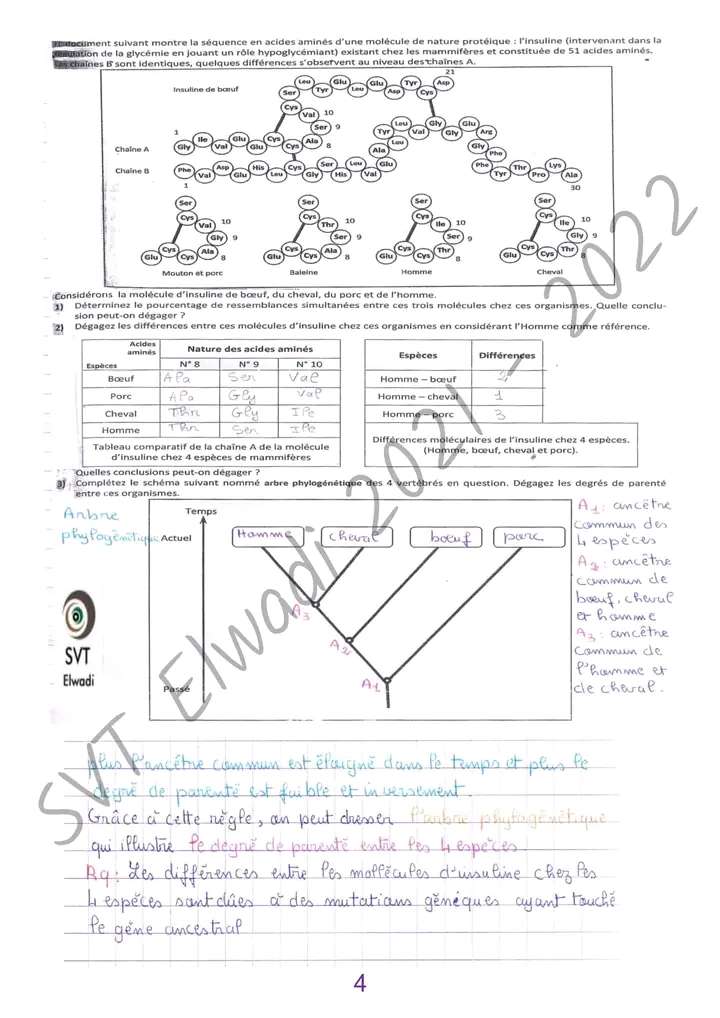 document suivant montre la séquence en acides aminés d'une molécule de nature protéique : l'insuline (intervenant dans la
régulation de la glycémie en jouant un rôle hypoglycémiant) existant chez les mammifères et constituée de 51 acides aminés.
Les chaînes B sont identiques, quelques différences s'observent au niveau des chaînes A.
21
Insuline de bœuf
Leu Glu Glu Tyr Asp
Ser Tyr Leu Asp Cys
Cys Val 10
Ser 9
1
Chaîne A
Gly Ile Val Glu Glu Cys Cys Ala 8
Tyr Leu Val Gly Gly Glu Arg
Leu Ala Gly Phe
Chaîne B
Phe Val Asp Glu His Leu Cys Gly Ser His Leu Val Glu
Phe Tyr Thr Pro Lys Ala
1
30
Ser Cys Val 10 Gly 9 Ala 8 Cys Cys Glu
Ser Cys Thr 10 Ser 9 Ala 8 Cys Cys Glu
Ser Cys Ile 10 Ser 9 Thr 8 Cys Cys Glu
Ser Cys Ile 10 Gly 9 Thr 8 Cys Cys Glu
Mouton et porc Baleine Homme Cheval
Considérons la molécule d'insuline de bœuf, du cheval, du porc et de l'homme.
1) Déterminez le pourcentage de ressemblances simultanées entre ces trois molécules chez ces organismes. Quelle conclu-
sion peut-on dégager ?
2) Dégagez les différences entre ces molécules d'insuline chez ces organismes en considérant l'Homme comme référence.
Acides aminés
Nature des acides aminés
Espèces N° 8 N° 9 N° 10
Bœuf Ala Ser Val
Porc Ala Gly Val
Cheval Thr Gly Ile
Homme Thr Ser Ile
Tableau comparatif de la chaîne A de la molécule
d'insuline chez 4 espèces de mammifères
Espèces Différences
Homme – bœuf 2
Homme – cheval 1
Homme – porc 3
Différences moléculaires de l'insuline chez 4 espèces.
(Homme, bœuf, cheval et porc).
Quelles conclusions peut-on dégager ?
3) Complétez le schéma suivant nommé arbre phylogénétique des 4 vertébrés en question. Dégagez les degrés de parenté
entre ces organismes.
Arbre
phylogénétique
Temps
Actuel
Passé
Homme cheval bœuf porc
A3
A2
A1
A1 : ancêtre
commun des
4 espèces
A2 : ancêtre
commun de
bœuf, cheval
et homme
A3 : ancêtre
commun de
l'homme et
de cheval.
SVT
Elwadi
plus l'ancêtre commun est éloigné dans le temps et plus le
degré de parenté est faible et inversement.
Grâce à cette règle, on peut dresser l'arbre phylogénétique
qui illustre le degré de parenté entre les 4 espèces
Rq : Les différences entre les mollécules d'insuline chez les
4 espèces sont dûes à des mutations géniques ayant touché
le gène ancestral
SVT Elwadi 2021 - 2022
4